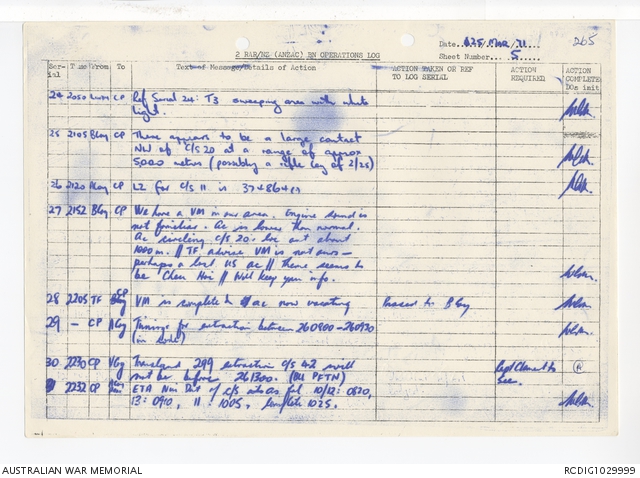 265
2 RAR/NZ (ANZAC) BN OPERATIONS LOG
Date
Sheet Number 5
Ser-ial Time From To Text of Message/Details of Action ACTION TAKEN OR REF TO LOG SERIAL ACTION REQUIRED ACTION COMPLETE DOs init
24 2050 CP Ref Serial 24: T3 sweeping area with white
light.
25 2105 BCoy CP There appears to be a large contact
NW of C/S 20 at a range of approx
5000 metres (possibly a rifle coy of 2/25)
26 2120 CP LZ for C/S 11 is
27 2152 BCoy CP We have a VM in our area. Engine sound is
not familiar. Ac is lower than normal.
Ac circling C/S 20's loc out about
1000m. // TF advise VM is not ours —
perhaps a lost US ac // there seems to
be Chieu Hoi // Will keep you info.
28 2205 TF VM is complete & ac now vacating Passed to B Coy
29 — CP ACoy Timings for extraction between 260800 – 260930
(in code)
30 2230 CP VCoy 299 extraction C/S 42 will
not be before 261300.
2232 CP ETA Nui Dat of C/S 10/12: 0820,
13: 0910, 11: 1005, complete 1025.
AUSTRALIAN WAR MEMORIAL
RCDIG1029999